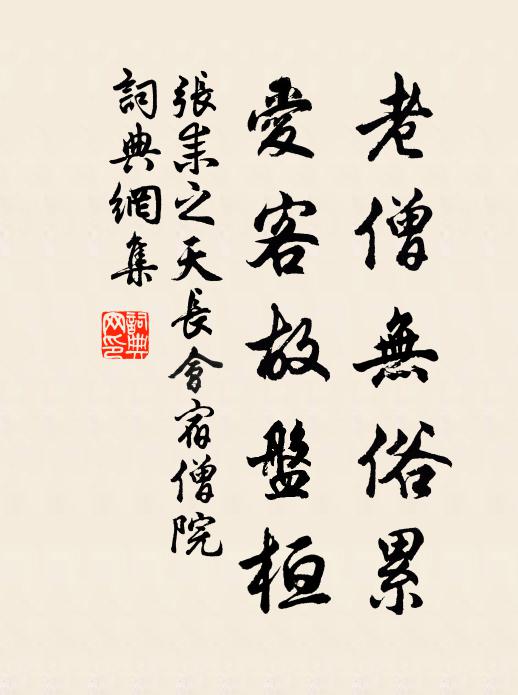 老僧無俗累
愛客故盤桓
張耒之天長會宿僧院
詞典網集
詞典網印